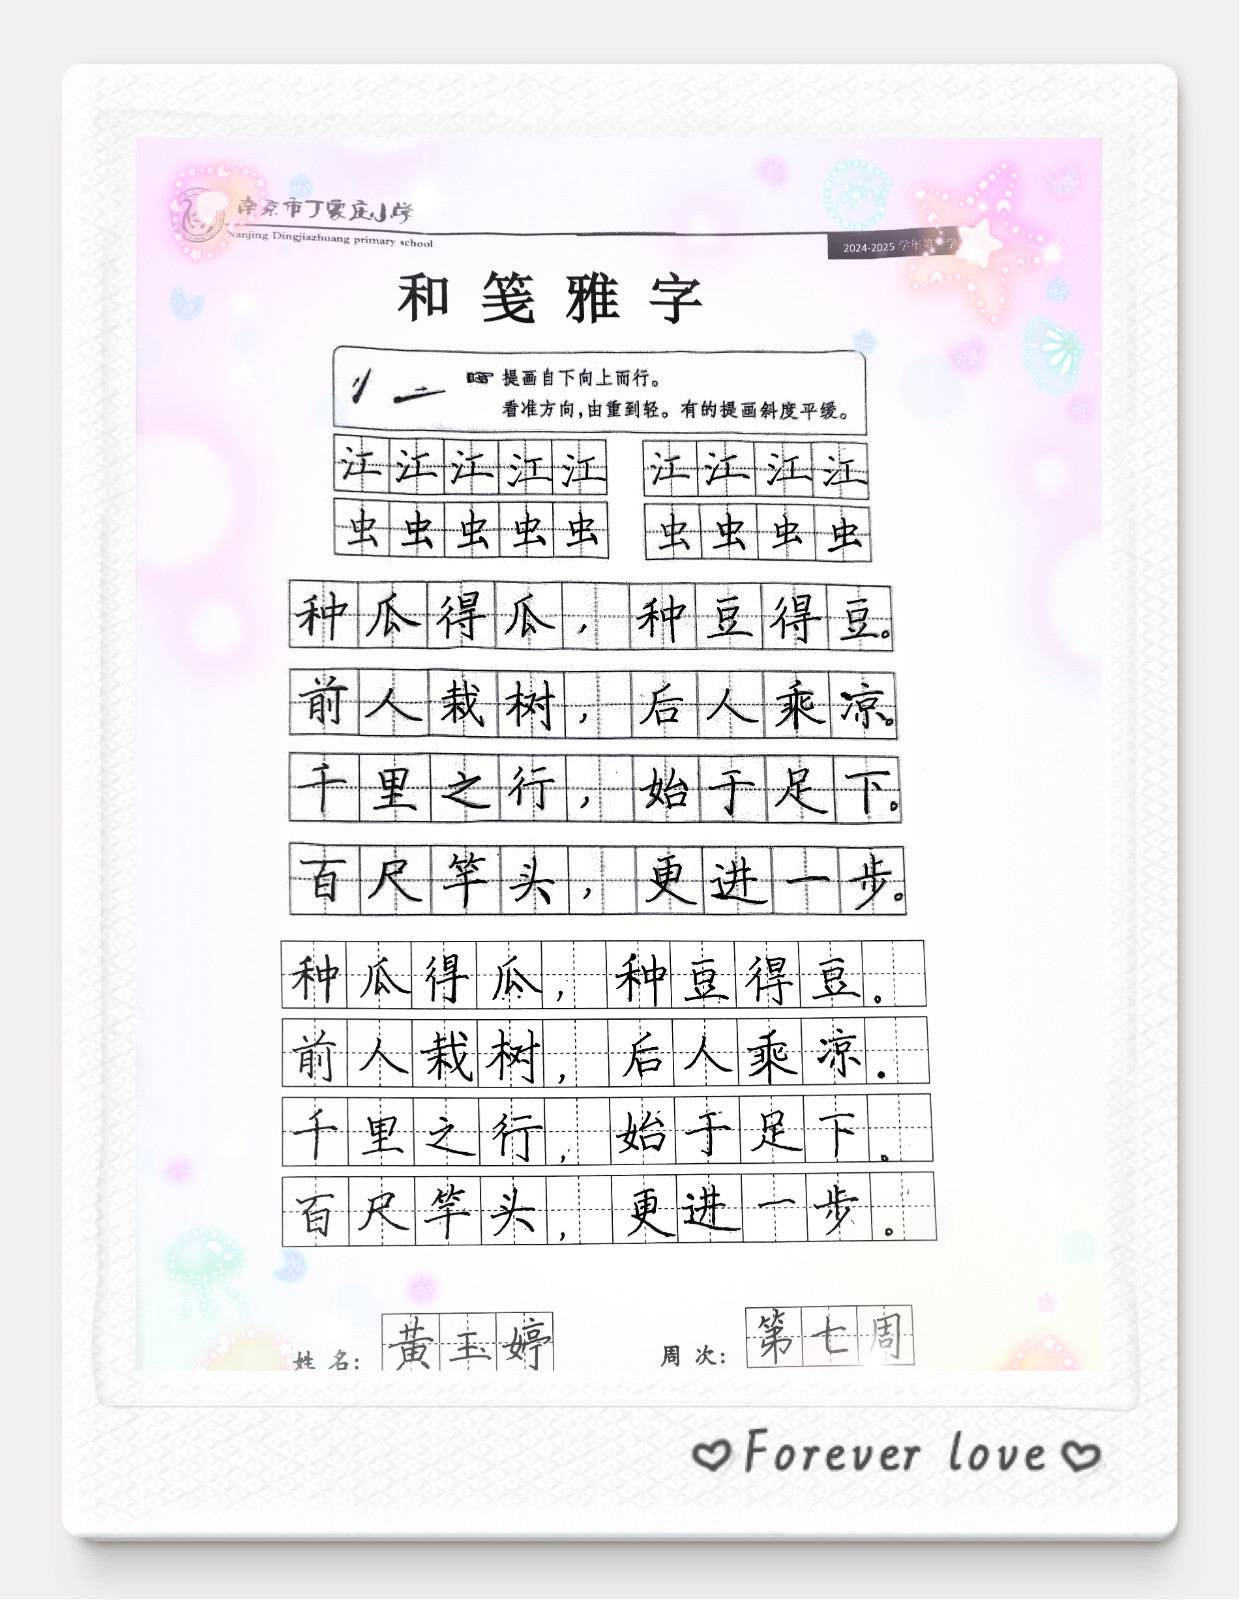 南京市丁家庄小学
Nanjing Dingjiazhuang primary school
2024-2025 学年第 学
和笺雅字
提画自下向上而行。
看准方向,由重到轻。有的提画斜度平缓。
江江江江江 江江江江
虫虫虫虫虫 虫虫虫虫
种瓜得瓜,种豆得豆。
前人栽树,后人乘凉。
千里之行,始于足下。
百尺竿头,更进一步。
种瓜得瓜,种豆得豆。
前人栽树,后人乘凉.
千里之行,始于足下。
百尺竿头,更进一步。
姓名: 黄玉婷 周次: 第七周
Forever love